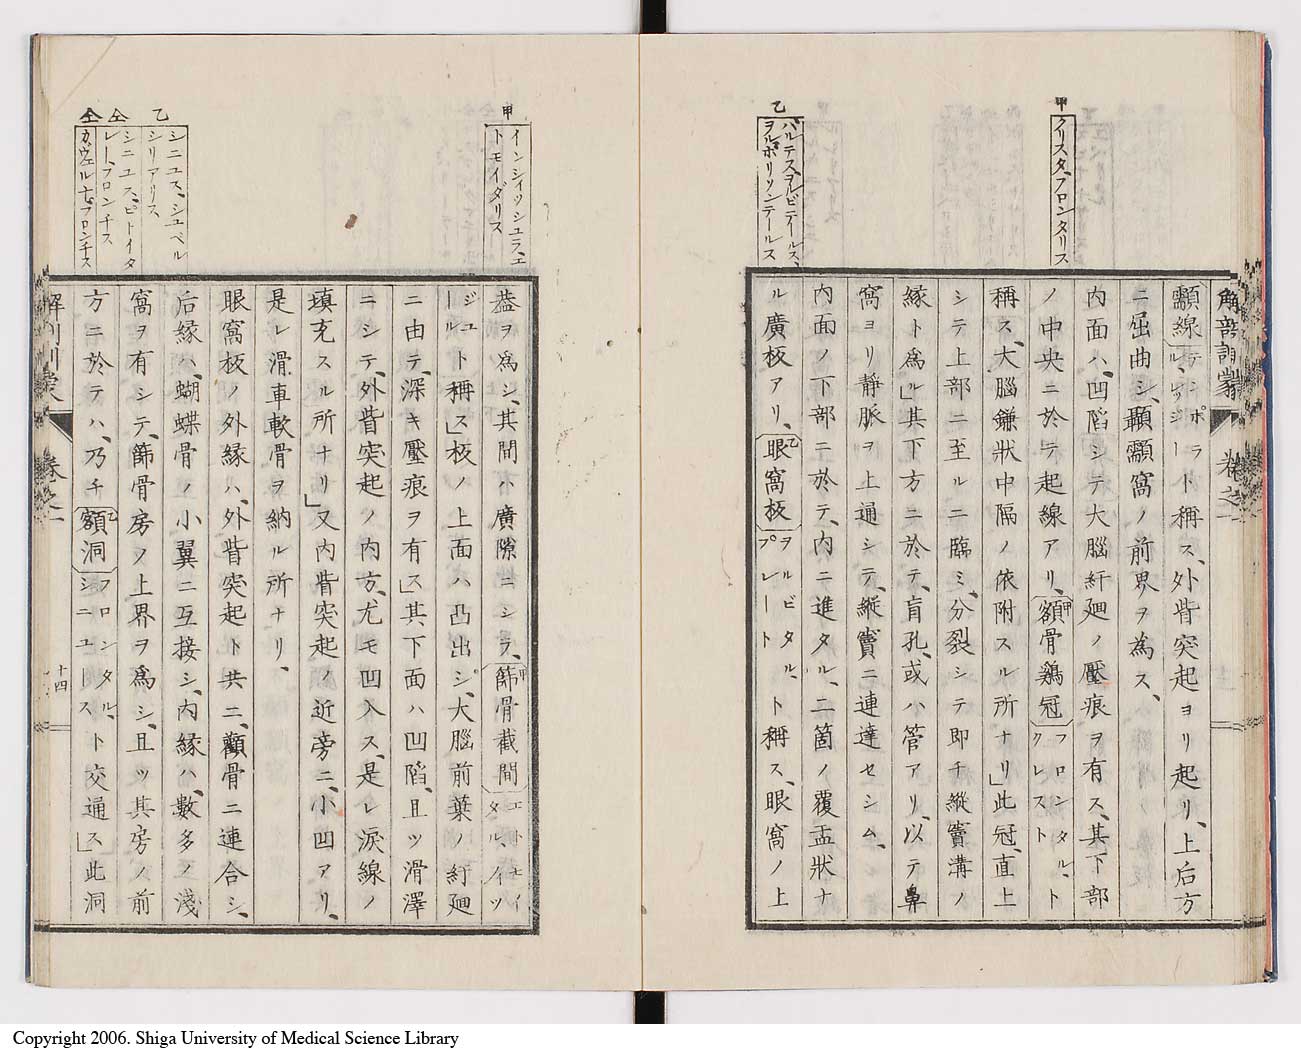 甲
クリスタ、フロンタリス
乙
パルテス、ヲルビテールス、
ヲルホリソンテールス
解剖訓蒙
卷之一
顬線テンポラ
ル、リジート稱ス、外眥突起ヨリ起リ、上后方
ニ屈曲シ、顳顬窩ノ前界ヲ為ス、
内面ハ、凹陷シテ大腦紆廻ノ壓痕ヲ有ス、其下部
ノ中央ニ於テ起線アリ、額骨鷄冠フロンタル、
クレスト ト
稱ス、大腦鎌狀中隔ノ依附スル所ナリ」此冠、直上
シテ上部ニ至ルニ臨ミ、分裂シテ即チ縱竇溝ノ
緣ト為ル」其下方ニ於テ、盲孔、或ハ管アリ、以テ鼻
窩ヨリ靜脈ヲ上通シテ、縱竇ニ連達セシム、
内面ノ下部ニ於テ、内ニ進タル、二箇ノ覆盂狀ナ
ル廣板アリ、眼窩板ヲルビタル、
プレート ト稱ス、眼窩ノ上
甲
インシィッシュラ、エ
トモイダリス
乙
シニユス、シユペル
シリアリス
仝
シニユス、ピトイタ
レー、フロンチス
仝
カウェルナ、フロンチス
蓋ヲ為シ、其間ハ廣隙ニシテ、篩骨截間エトモイ
タル、ノッ
ジュト稱ス」板ノ上面ハ凸出シ、大腦前葉ノ紆廻
ニ由テ、深キ壓痕ヲ有ス」其下面ハ凹陷、且ツ滑澤
ニシテ、外眥突起ノ内方、尤モ凹入ス、是レ淚線ノ
填充スル所ナリ」又内眥突起ノ近旁ニ、小凹アリ、
是レ滑車軟骨ヲ納ル所ナリ、
眼窩板ノ外緣ハ、外眥突起ト共ニ、顴骨ニ連合シ、
后緣ハ、蝴蝶骨ノ小翼ニ互接シ、内緣ハ、數多ノ淺
窩ヲ有シテ、篩骨房ノ上界ヲ為シ、且ツ其房ノ前
方ニ於テハ、乃チ額洞フロンタル、
シニユース ト交通ス」此洞
解剖訓蒙
卷之一
十四
Copyright 2006. Shiga University of Medical Science Library